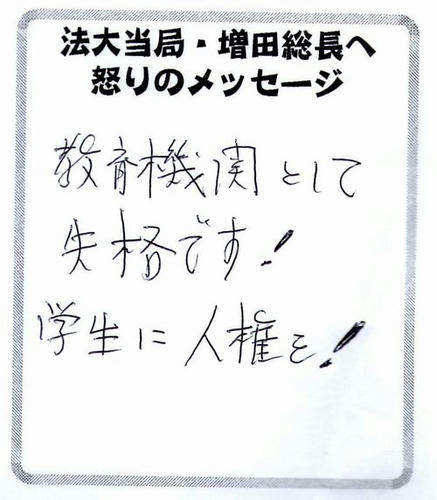 法大当局・増田総長へ
怒りのメッセージ
教育機関として
失格です!
学生に人権を!